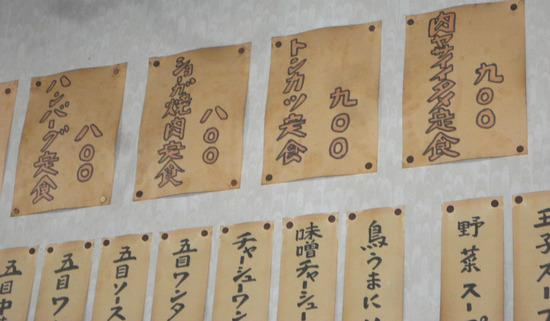 肉ヤサイイタメ定食
九〇〇
トンカツ定食
九〇〇
ショーガ焼肉定食
八〇〇
ハンバーグ定食
八〇〇
玉子スープ
野菜スープ
鳥うまに
味噌チャーシュー
チャーシューワン
五目ワンタ
五目ソース
五目ワ
五目中